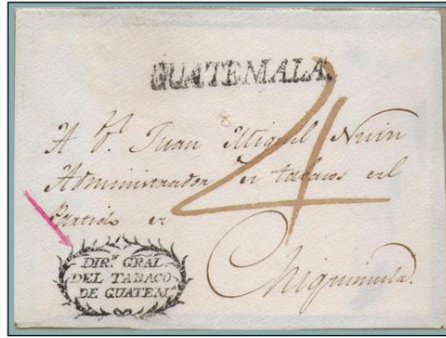 GUATEMALA.
4
A Dn. Juan Miguel
Administrador de tabacos del
Partido de
Chiquimula.
DIRn. GRAL.
DEL TABACO
DE GUATEMa.